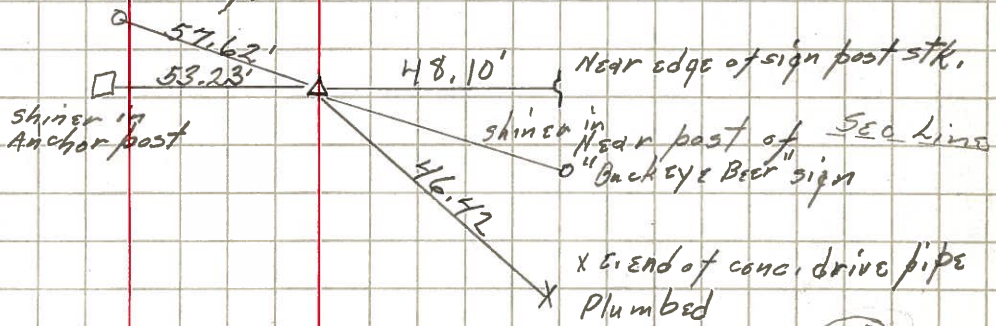 57.62'
53.23'
48.10'
Near edge of sign post stk.
shiner in
Anchor post
shiner in
Near post of
Sec Line
"Buckeye Beer" sign
46.42
x E. end of conc. drive pipe
Plumbed